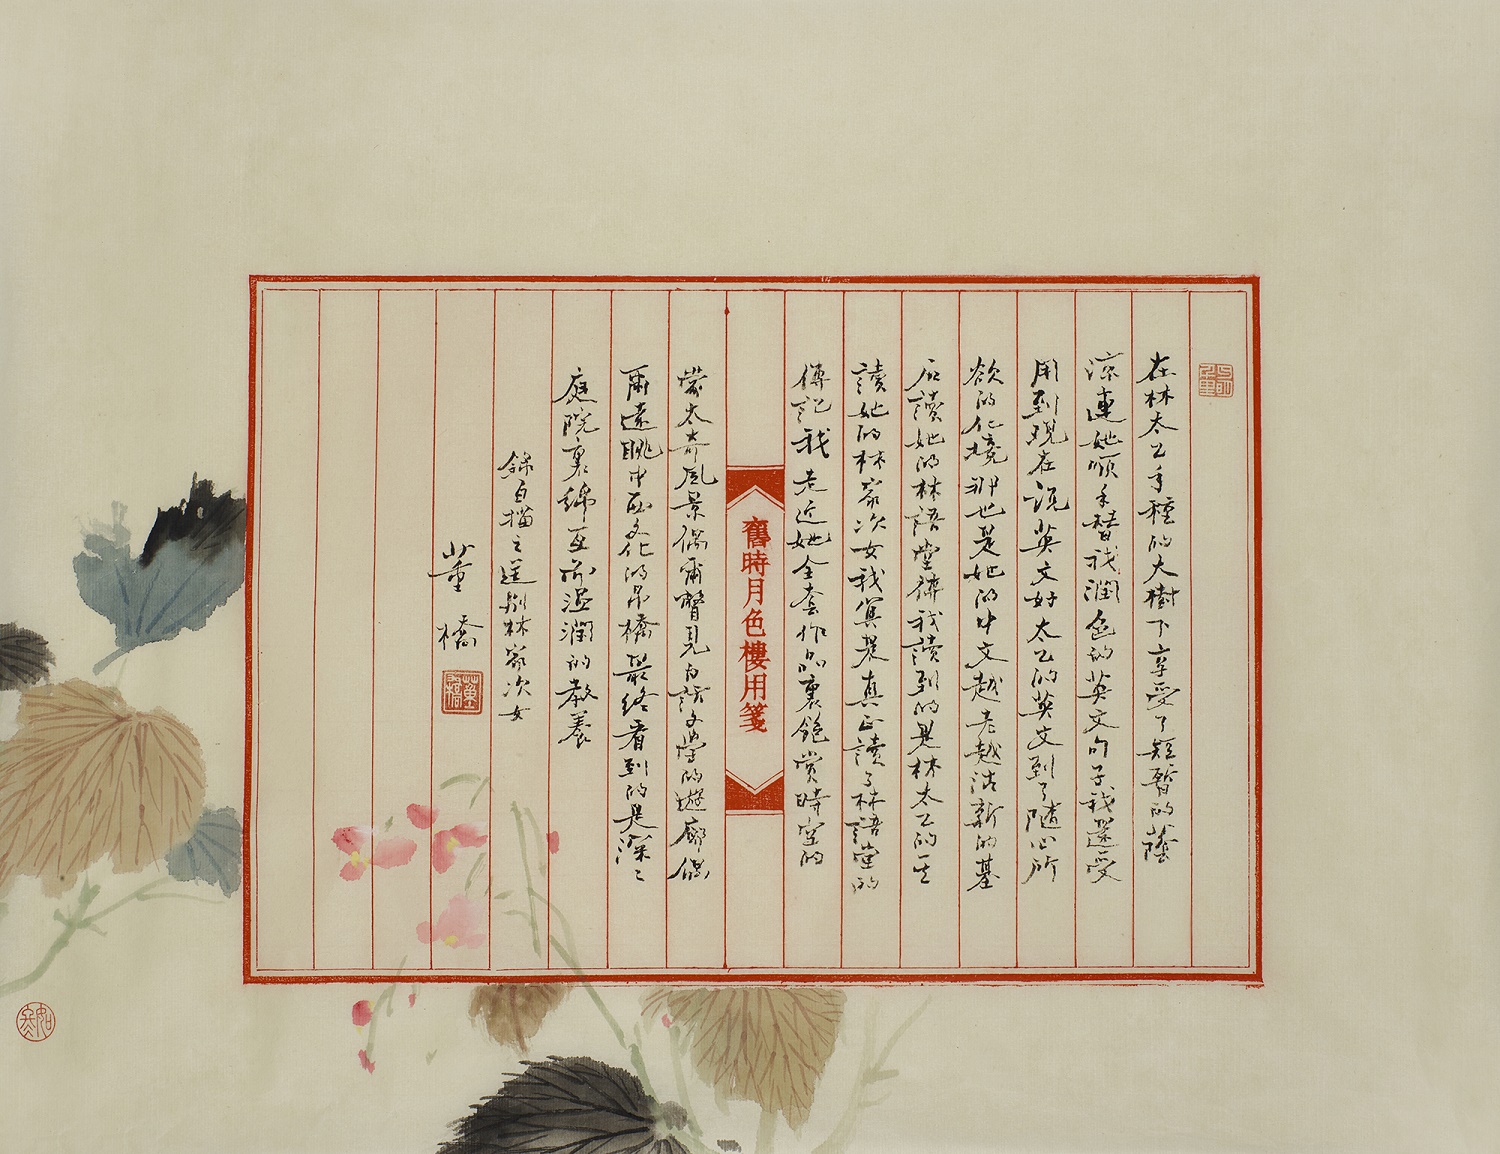 在林太乙手種的大樹下享受了短暫的蔭
涼連她順手替我潤色的英文句子我還受
用到現在說英文好太乙的英文到了隨心所
欲的化境那也是她的中文越老越清新的基
石讀她的林語堂傳我讀到的是林太乙的一生
讀她的林家次女我算是真正讀了林語堂的
傳記我走近她全套作品裏飽賞時空的
舊時月色樓用箋
蒙太奇風景偶爾瞥見白話文學的遊廊偶
爾遠眺中西文化的吊橋最終看到的是深深
庭院裏綿亙而溫潤的教養
錄自描之送別林家次女
董橋
董橋